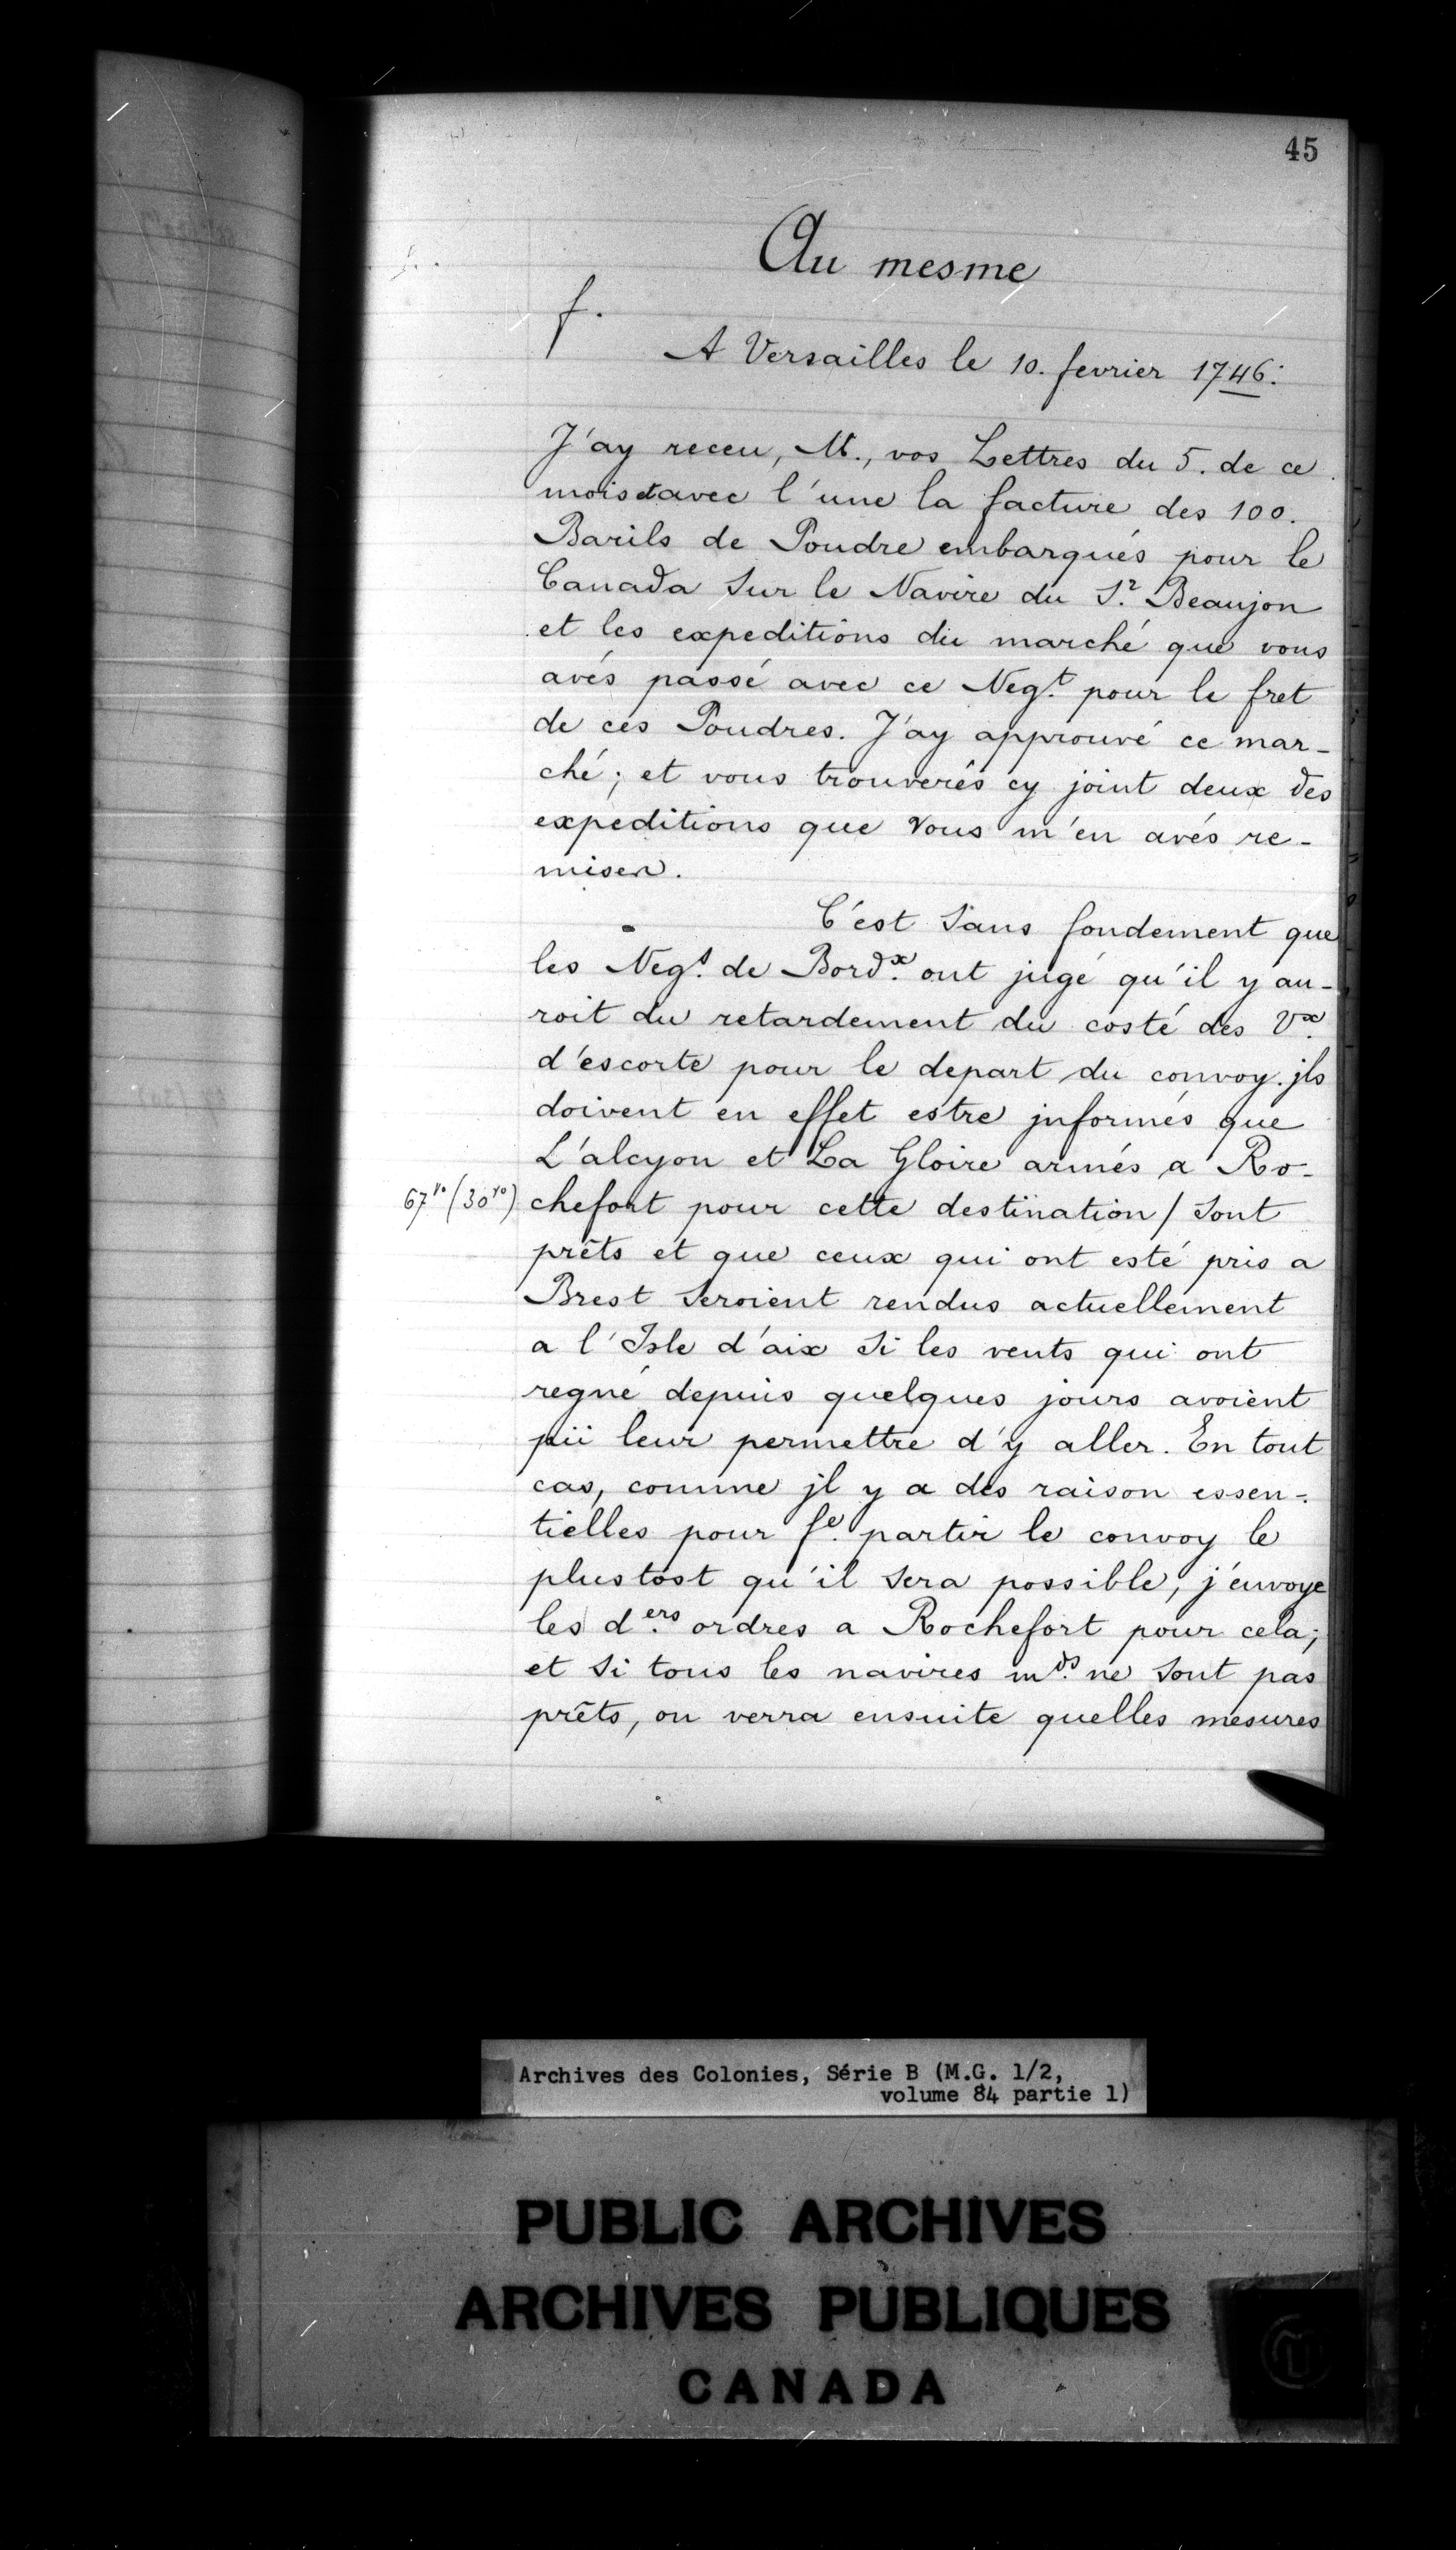 45
Au mesme
f.
A Versailles le 10. fevrier 1746:
J'ay receu, M., vos Lettres du 5. de ce
mois et avec l'une la facture des 100.
Barils de Poudre embarqués pour le
Canada sur le Navire du S.r Beaujon
et les expeditions du marché que vous
avés passé avec ce Neg.t pour le fret
de ces Poudres. J'ay approuvé ce mar-
ché; et vous trouverés cy joint deux des
expeditions que vous m'en avés re-
mises.
C'est sans fondement que
les Neg.t de Bord.x ont jugé qu'il y au-
roit du retardement du costé des V.x
d'escorte pour le depart du convoy. jls
doivent en effet estre jnformés que
L'alcyon et La Gloire armés a Ro-
67 vo (30 vo) chefort pour cette destination / sont
prêts et que ceux qui ont esté pris a
Brest seroient rendus actuellement
a l'Isle d'aix si les vents qui ont
regné depuis quelques jours avoient
pü leur permettre d'y aller. En tout
cas, comme jl y a des raison essen-
tielles pour f.e partir le convoy le
plustost qu'il sera possible, j'envoye
les d.ers ordres a Rochefort pour cela;
et si tous les navires m.ds ne sont pas
prêts, on verra ensuite quelles mesures
Archives des Colonies, Série B (M.G. 1/2,
volume 84 partie 1)
PUBLIC ARCHIVES
ARCHIVES PUBLIQUES
CANADA